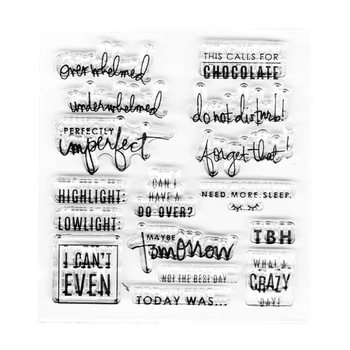 overwhelmed
THIS CALLS FOR
CHOCOLATE
underwhelmed
do not disturb!
PERFECTLY
imperfect
forget that!
HIGHLIGHT:
LOWLIGHT:
CAN I
HAVE A
DO OVER?
NEED MORE SLEEP.
I CAN'T
EVEN
MAYBE
tomorrow
TBH
NOT THE BEST DAY.
TODAY WAS...
WHAT A
CRAZY
DAY!